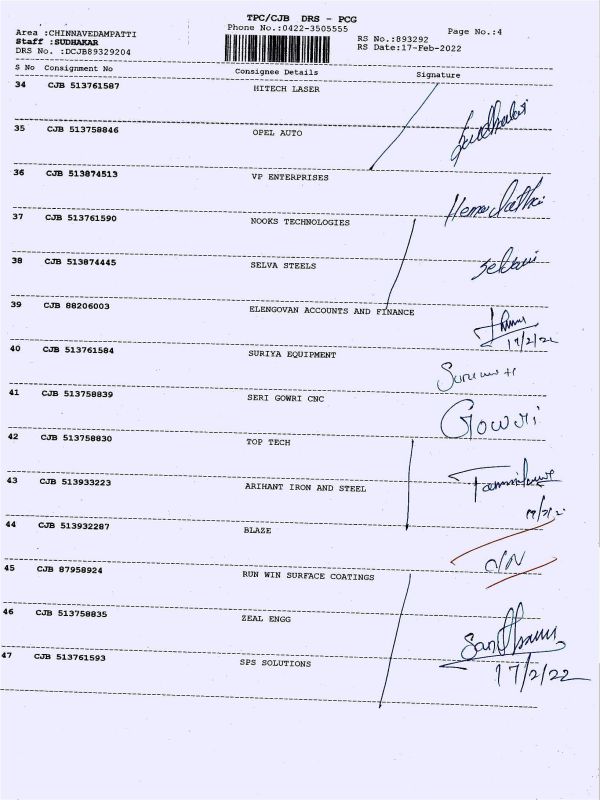 TPC/CJB DRS - PCG
Phone No.:0422-3505555
Page No.:4
Area :CHINNAVEDAMPATTI
Staff :SUDHAKAR
DRS No. :DCJB89329204
RS No.:893292
RS Date:17-Feb-2022
S No Consignment No Consignee Details Signature
34 CJB 513761587 HITECH LASER
35 CJB 513758846 OPEL AUTO
36 CJB 513874513 VP ENTERPRISES
37 CJB 513761590 NOOKS TECHNOLOGIES
38 CJB 513874445 SELVA STEELS
39 CJB 88206003 ELENGOVAN ACCOUNTS AND FINANCE
17/2/22
40 CJB 513761584 SURIYA EQUIPMENT
41 CJB 513758839 SERI GOWRI CNC
Gowri
42 CJB 513758830 TOP TECH
43 CJB 513933223 ARIHANT IRON AND STEEL
44 CJB 513932287 BLAZE
45 CJB 87958924 RUN WIN SURFACE COATINGS
46 CJB 513758835 ZEAL ENGG
47 CJB 513761593 SPS SOLUTIONS
17/2/22